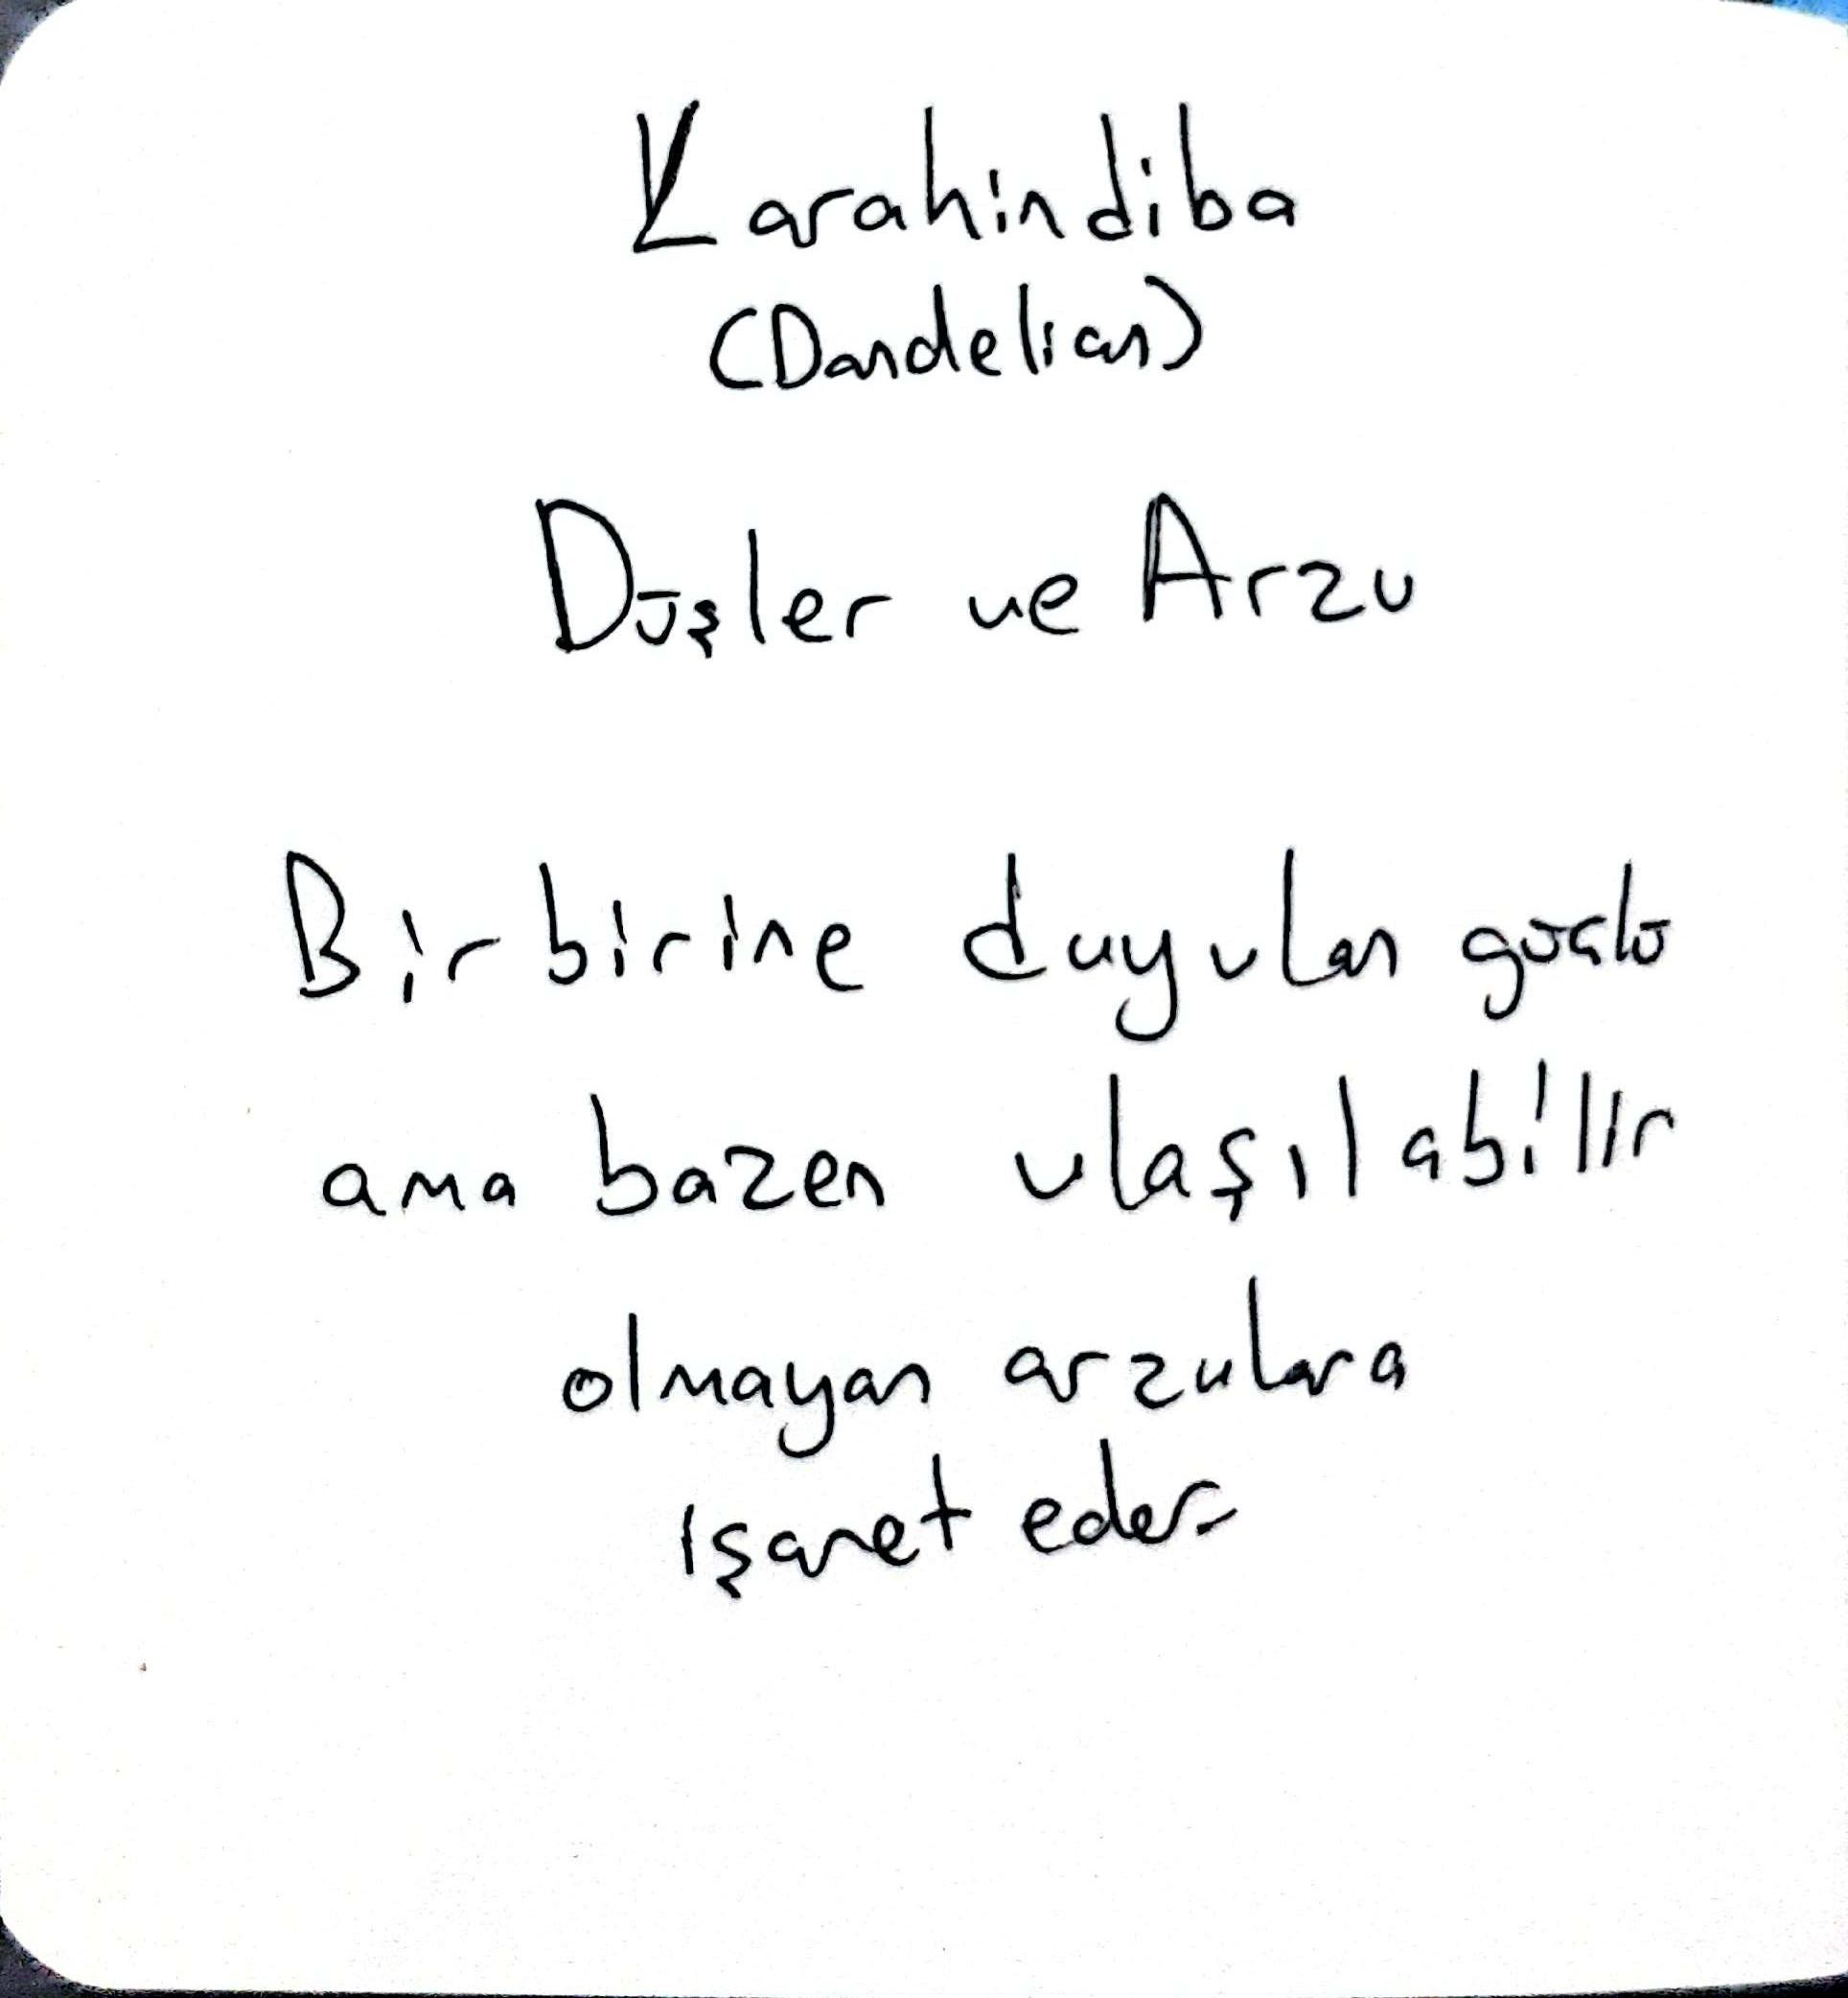 Karahindiba
(Dandelion)
Düşler ve Arzu
Birbirine duyulan güçlü
ama bazen ulaşılabilir
olmayan arzulara
işaret eder